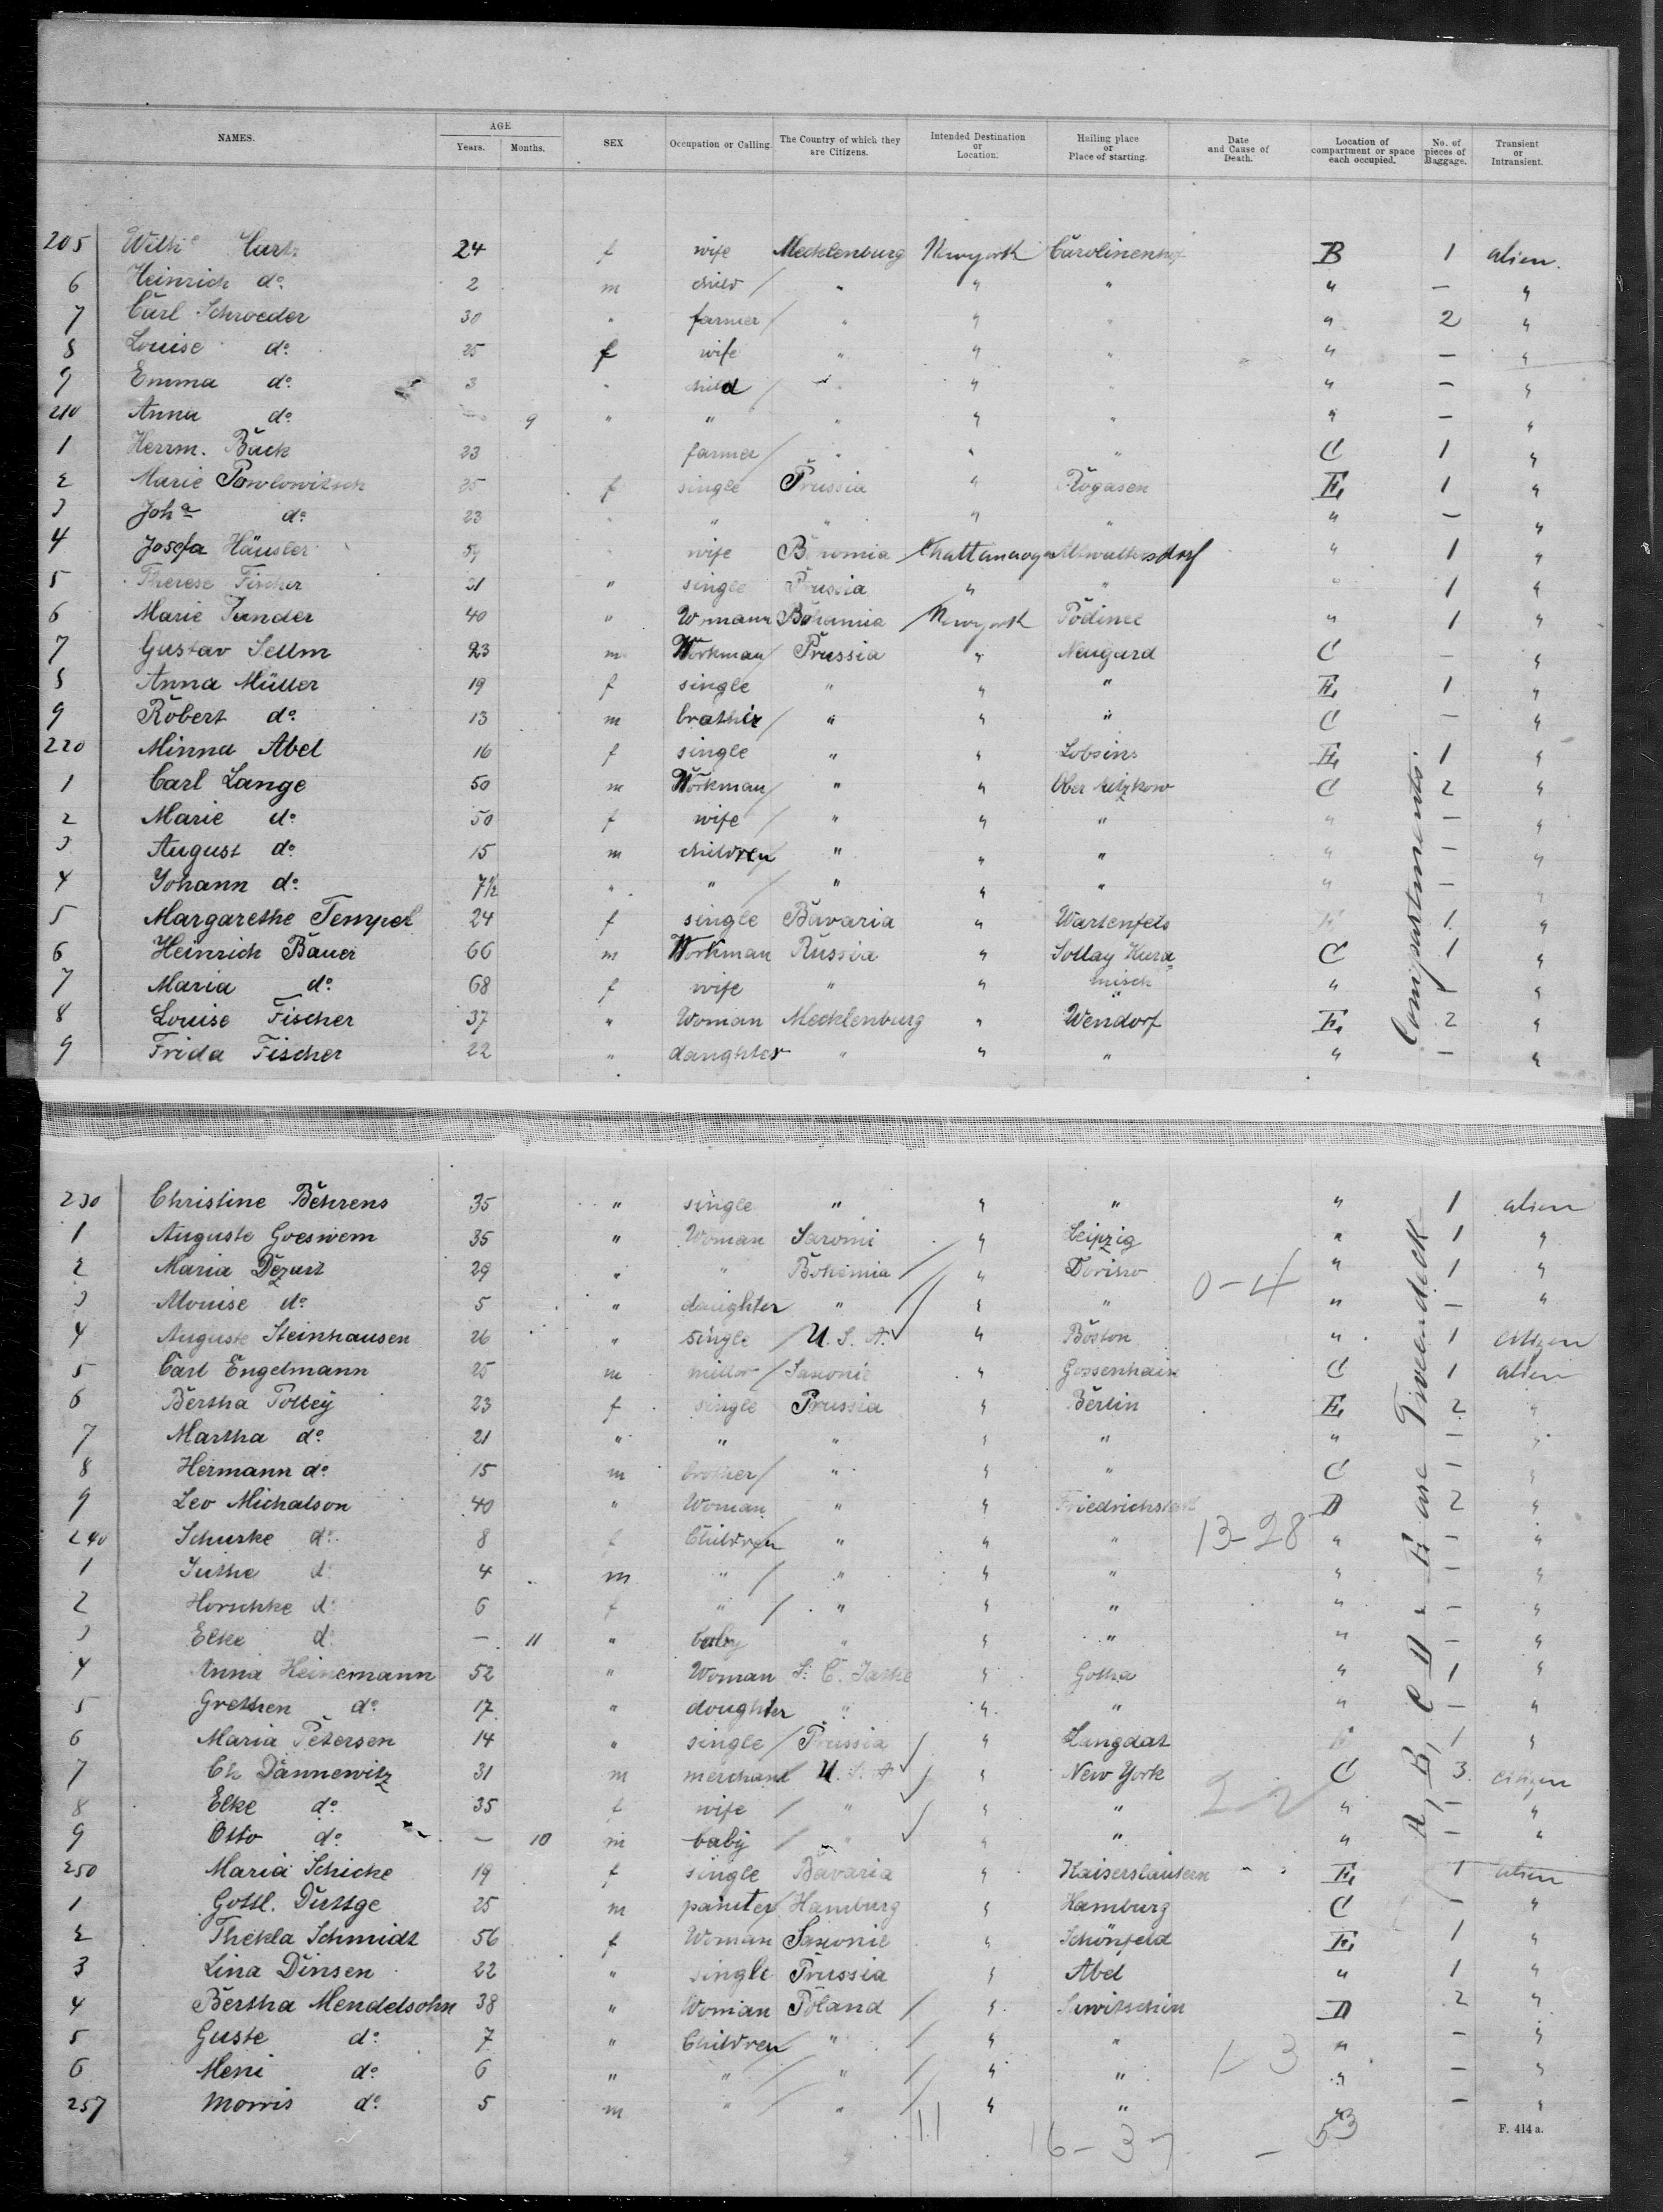 NAMES. AGE Years. Months. SEX Occupation or Calling. The Country of which they are Citizens. Intended Destination or Location. Hailing place or Place of starting. Date and Cause of Death. Location of compartment or space each occupied. No. of pieces of Baggage. Transient or Intransient.
205 24 f wife Mecklenburg Newyork B 1 alien.
6 Heinrich do 2 m child / " " " " — "
7 Carl Schroeder 30 " farmer / " " " " 2 "
8 Louise do 25 f wife " " " " — "
9 Emma do 3 " child / " " " " — "
210 Anna do — 9 " " " " " " — "
1 Herrm. Back 23 farmer / " " " C 1 "
2 Marie Pawlowitsch 25 f single Prussia " Rogasen E, 1 "
3 Joha do 23 " " " " " " — "
4 Josefa Häusler 59 " wife Chattanooga Altwaltersdorf " 1 "
5 Therese Fischer 21 " single Prussia " " " 1 "
6 Marie 40 " Womann Bohamia Newyork " 1 "
7 Gustav Sellm 23 m Workman / Prussia " Naugard C — "
8 Anna Müller 19 f single " " " E, 1 "
9 Robert do 13 m brother / " " " C — "
220 Minna Abel 16 f single " " Lobsins E, 1 "
1 Carl Lange 50 m Workman / " " Ober C 2 "
2 Marie do 50 f wife / " " " " — "
3 August do 15 m children " " " " — "
4 Johann do 7½ " " / " " " " — "
5 Margarethe Tempel 24 f single Bavaria " Wartenfels E 1 "
6 Heinrich Bauer 66 m Workman Russia " C 1 "
7 Maria do 68 f wife " " misch " — "
8 Louise Fischer 37 " Woman Mecklenburg " Wendorf E, 2 "
9 Frida Fischer 22 " daughter " " " " — "
230 Christine Behrens 35 " single " " " " 1 alien
1 Auguste 35 " Woman " Leipzig " 1 "
2 Maria Dezart 29 " " Bohemia / " " 1 "
0-4
3 do 5 " daughter " / " " " — "
4 Auguste Steinhausen 26 " single / U. S. A. " Boston " 1 citizen
5 Carl Engelmann 25 m / Saxonie " C 1 alien
6 Bertha 23 f single Prussia " Berlin E, 2 "
7 Martha do 21 " " " " " " — "
8 Hermann do 15 m brother / " " " C — "
9 Leo Michalson 40 " Woman " " D 2 "
13-28
240 Schurke do 8 f Children " " " " — "
1 do 4 m " / " " " " — "
2 Horschke do 6 f " / " " " " — "
3 Elke do — 11 " baby " " " " — "
4 Anna Heinemann 52 " Woman " Gotha " 1 "
5 Grethen do 17 " doughter " " " " — "
6 Maria Petersen 14 " single / Prussia / " Langdat 1 "
7 Ch Dannewitz 31 m merchant U. S. A / " New York C 3 citizen
2-2
8 Elke do 35 f wife / " / " " " — "
9 Otto do — 10 m baby / " " " " — "
250 Maria Schicke 19 f single Bavaria " Kaiserslautern E, 1 alien
1 Gottl. Duttge 25 m painter / Hamburg " Hamburg C — "
2 Thekla Schmidt 56 f Woman Saxonie " Schönfeld E, 1 "
3 Lina Dinsen 22 " single Prussia " Abel " 1 "
4 Bertha Mendelsohn 38 " Woman Poland / " D 2 "
5 Guste do 7 " Children / " / " " " — "
1-3
6 Meni do 6 " " / " / " " " — "
257 Morris do 5 m " / " / " " " — "
11 16-37 - 53
Compartments
A, B, C D & E are Tweendeck
F. 414 a.